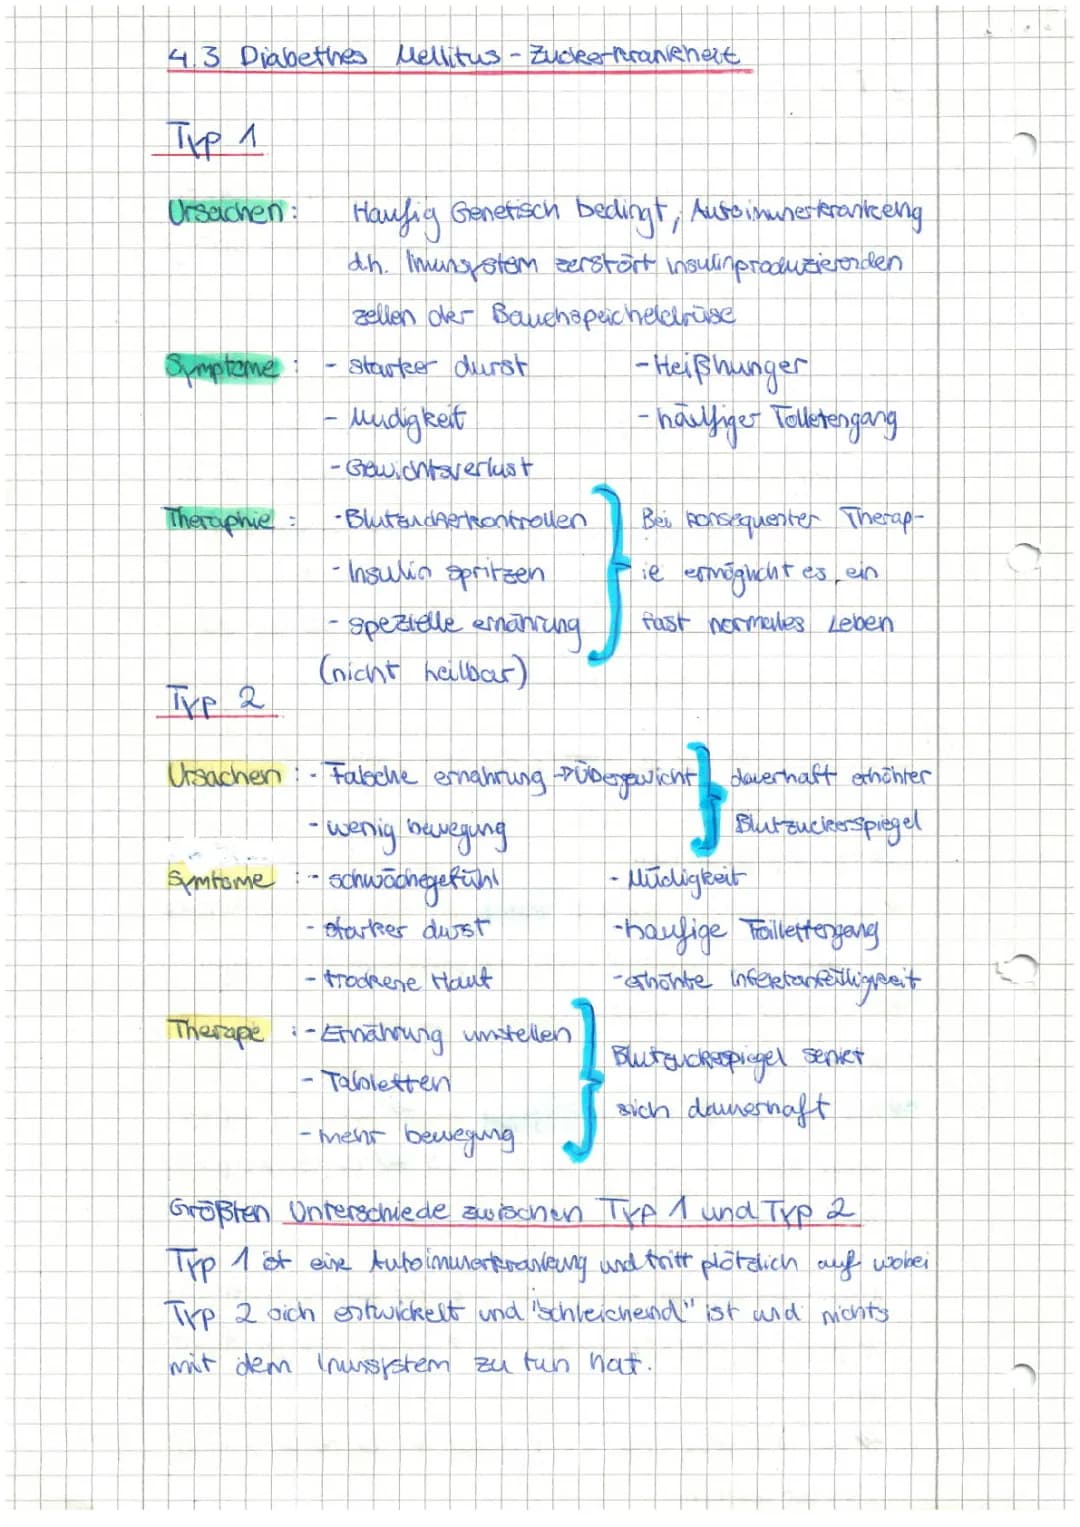 4.3 Diabethes Mellitus - Zuckerkrankheit
Typ 1
Ursachen: Häufig Genetisch bedingt, Autoimunerkrankeng
d.h. Imunsystem zerstört insulinproduzierenden
zellen der Bauchspeicheldrüse
Symptome: - starker durst - Heißhunger
- Mudigkeit - häufiger Toiletengang
- Gewichtsverlust
Theraphie: - Blutzuckerkontrollen Bei konsequenter Therap-
- Insulin spritzen ie ermöglicht es ein
- spezielle ernährung fast normales Leben
(nicht heilbar)
Typ 2
Ursachen: - Falsche ernahrung → Übergewicht dauerhaft erhöhter
- wenig bewegung Blutzuckerspiegel
Symtome: - schwächegefühl - Müdigkeit
- starker durst - haufige Toillettengang
- trockene Haut - erhöhte Infektanfälligkeit
Therapie: - Ernährung umstellen Blutzuckerspiegel senket
- Tabletten sich dauerhaft
- mehr bewegung
Größten Unterschiede zwischen Typ 1 und Typ 2
Typ 1 ist eine Autoimunerkrankung und tritt plötzlich auf wobei
Typ 2 sich entwickelt und "schleichend" ist und nichts
mit dem Inussystem zu tun hat.